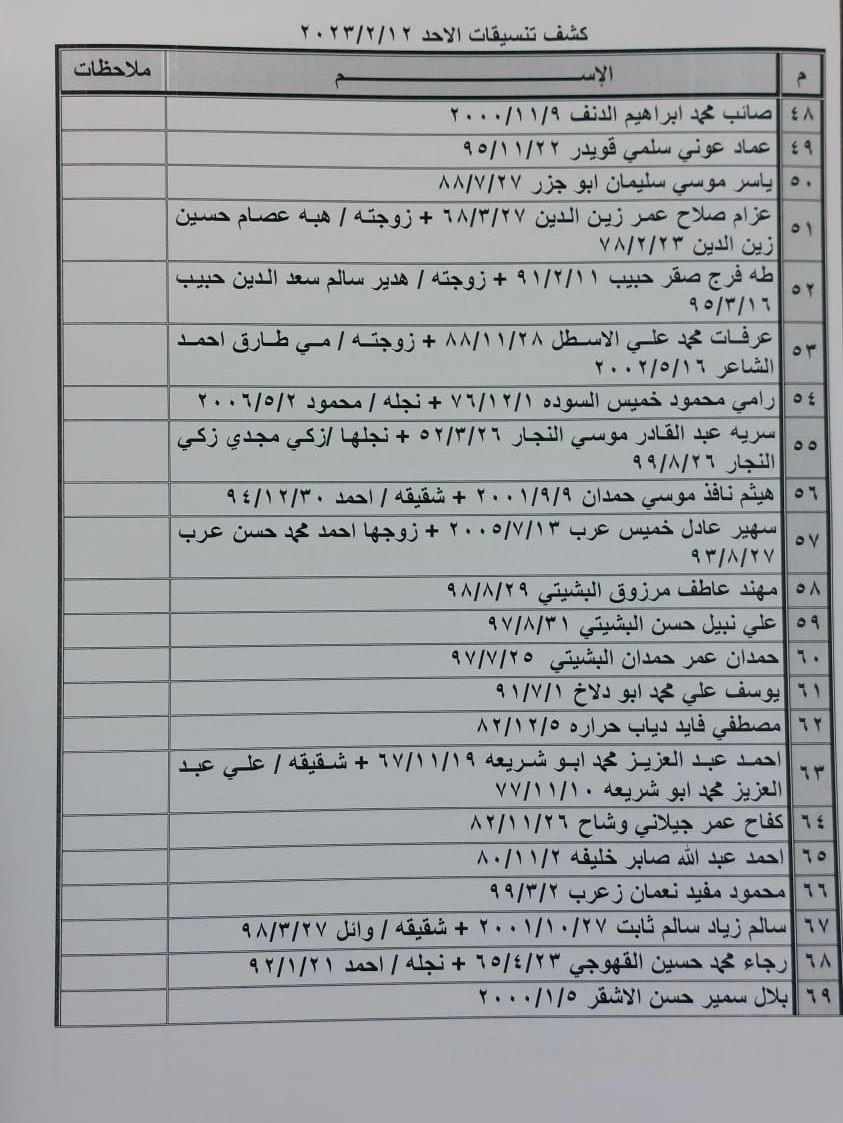 كشف تنسيقات الاحد ٢٠٢٣/٢/١٢
م الإســـم ملاحظات
٤٨ صائب محمد ابراهيم الدنف ٢٠٠٠/١١/٩
٤٩ عماد عوني سلمي قويدر ٩٥/١١/٢٢
٥٠ ياسر موسي سليمان ابو جزر ٨٨/٧/٢٧
٥١ عزام صلاح عمر زين الدين ٦٨/٣/٢٧ + زوجته / هبه عصام حسين
زين الدين ٧٨/٢/٢٣
٥٢ طه فرج صقر حبيب ٩١/٢/١١ + زوجته / هدير سالم سعد الدين حبيب
٩٥/٣/١٦
٥٣ عرفات محمد علي الاسطل ٨٨/١١/٢٨ + زوجته / مي طارق احمد
الشاعر ٢٠٠٢/٥/١٦
٥٤ رامي محمود خميس السوده ٧٦/١٢/١ + نجله / محمود ٢٠٠٦/٥/٢
٥٥ سريه عبد القادر موسي النجار ٥٢/٣/٢٦ + نجلها /زكي مجدي زكي
النجار ٩٩/٨/٢٦
٥٦ هيثم نافذ موسي حمدان ٢٠٠١/٩/٩ + شقيقه / احمد ٩٤/١٢/٣٠
٥٧ سهير عادل خميس عرب ٢٠٠٥/٧/١٣ + زوجها احمد محمد حسن عرب
٩٣/٨/٢٧
٥٨ مهند عاطف مرزوق البشيتي ٩٨/٨/٢٩
٥٩ علي نبيل حسن البشيتي ٩٧/٨/٣١
٦٠ حمدان عمر حمدان البشيتي ٩٧/٧/٢٥
٦١ يوسف علي محمد ابو دلاخ ٩١/٧/١
٦٢ مصطفي فايد دياب حراره ٨٢/١٢/٥
٦٣ احمد عبد العزيز محمد ابو شريعه ٦٧/١١/١٩ + شقيقه / علي عبد
العزيز محمد ابو شريعه ٧٧/١١/١٠
٦٤ كفاح عمر جيلاني وشاح ٨٢/١١/٢٦
٦٥ احمد عبد الله صابر خليفه ٨٠/١١/٢
٦٦ محمود مفيد نعمان زعرب ٩٩/٣/٢
٦٧ سالم زياد سالم ثابت ٢٠٠١/١٠/٢٧ + شقيقه / وائل ٩٨/٣/٢٧
٦٨ رجاء محمد حسين القهوجي ٦٥/٤/٢٣ + نجله / احمد ٩٢/١/٢١
٦٩ بلال سمير حسن الاشقر ٢٠٠٠/١/٥